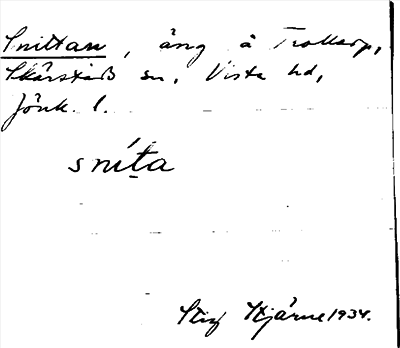 Snittan, äng å Trollarp,
Skärstads sn, Vista hd,
Jönk. l.
sníṯa
Stig Stjärne 1934.